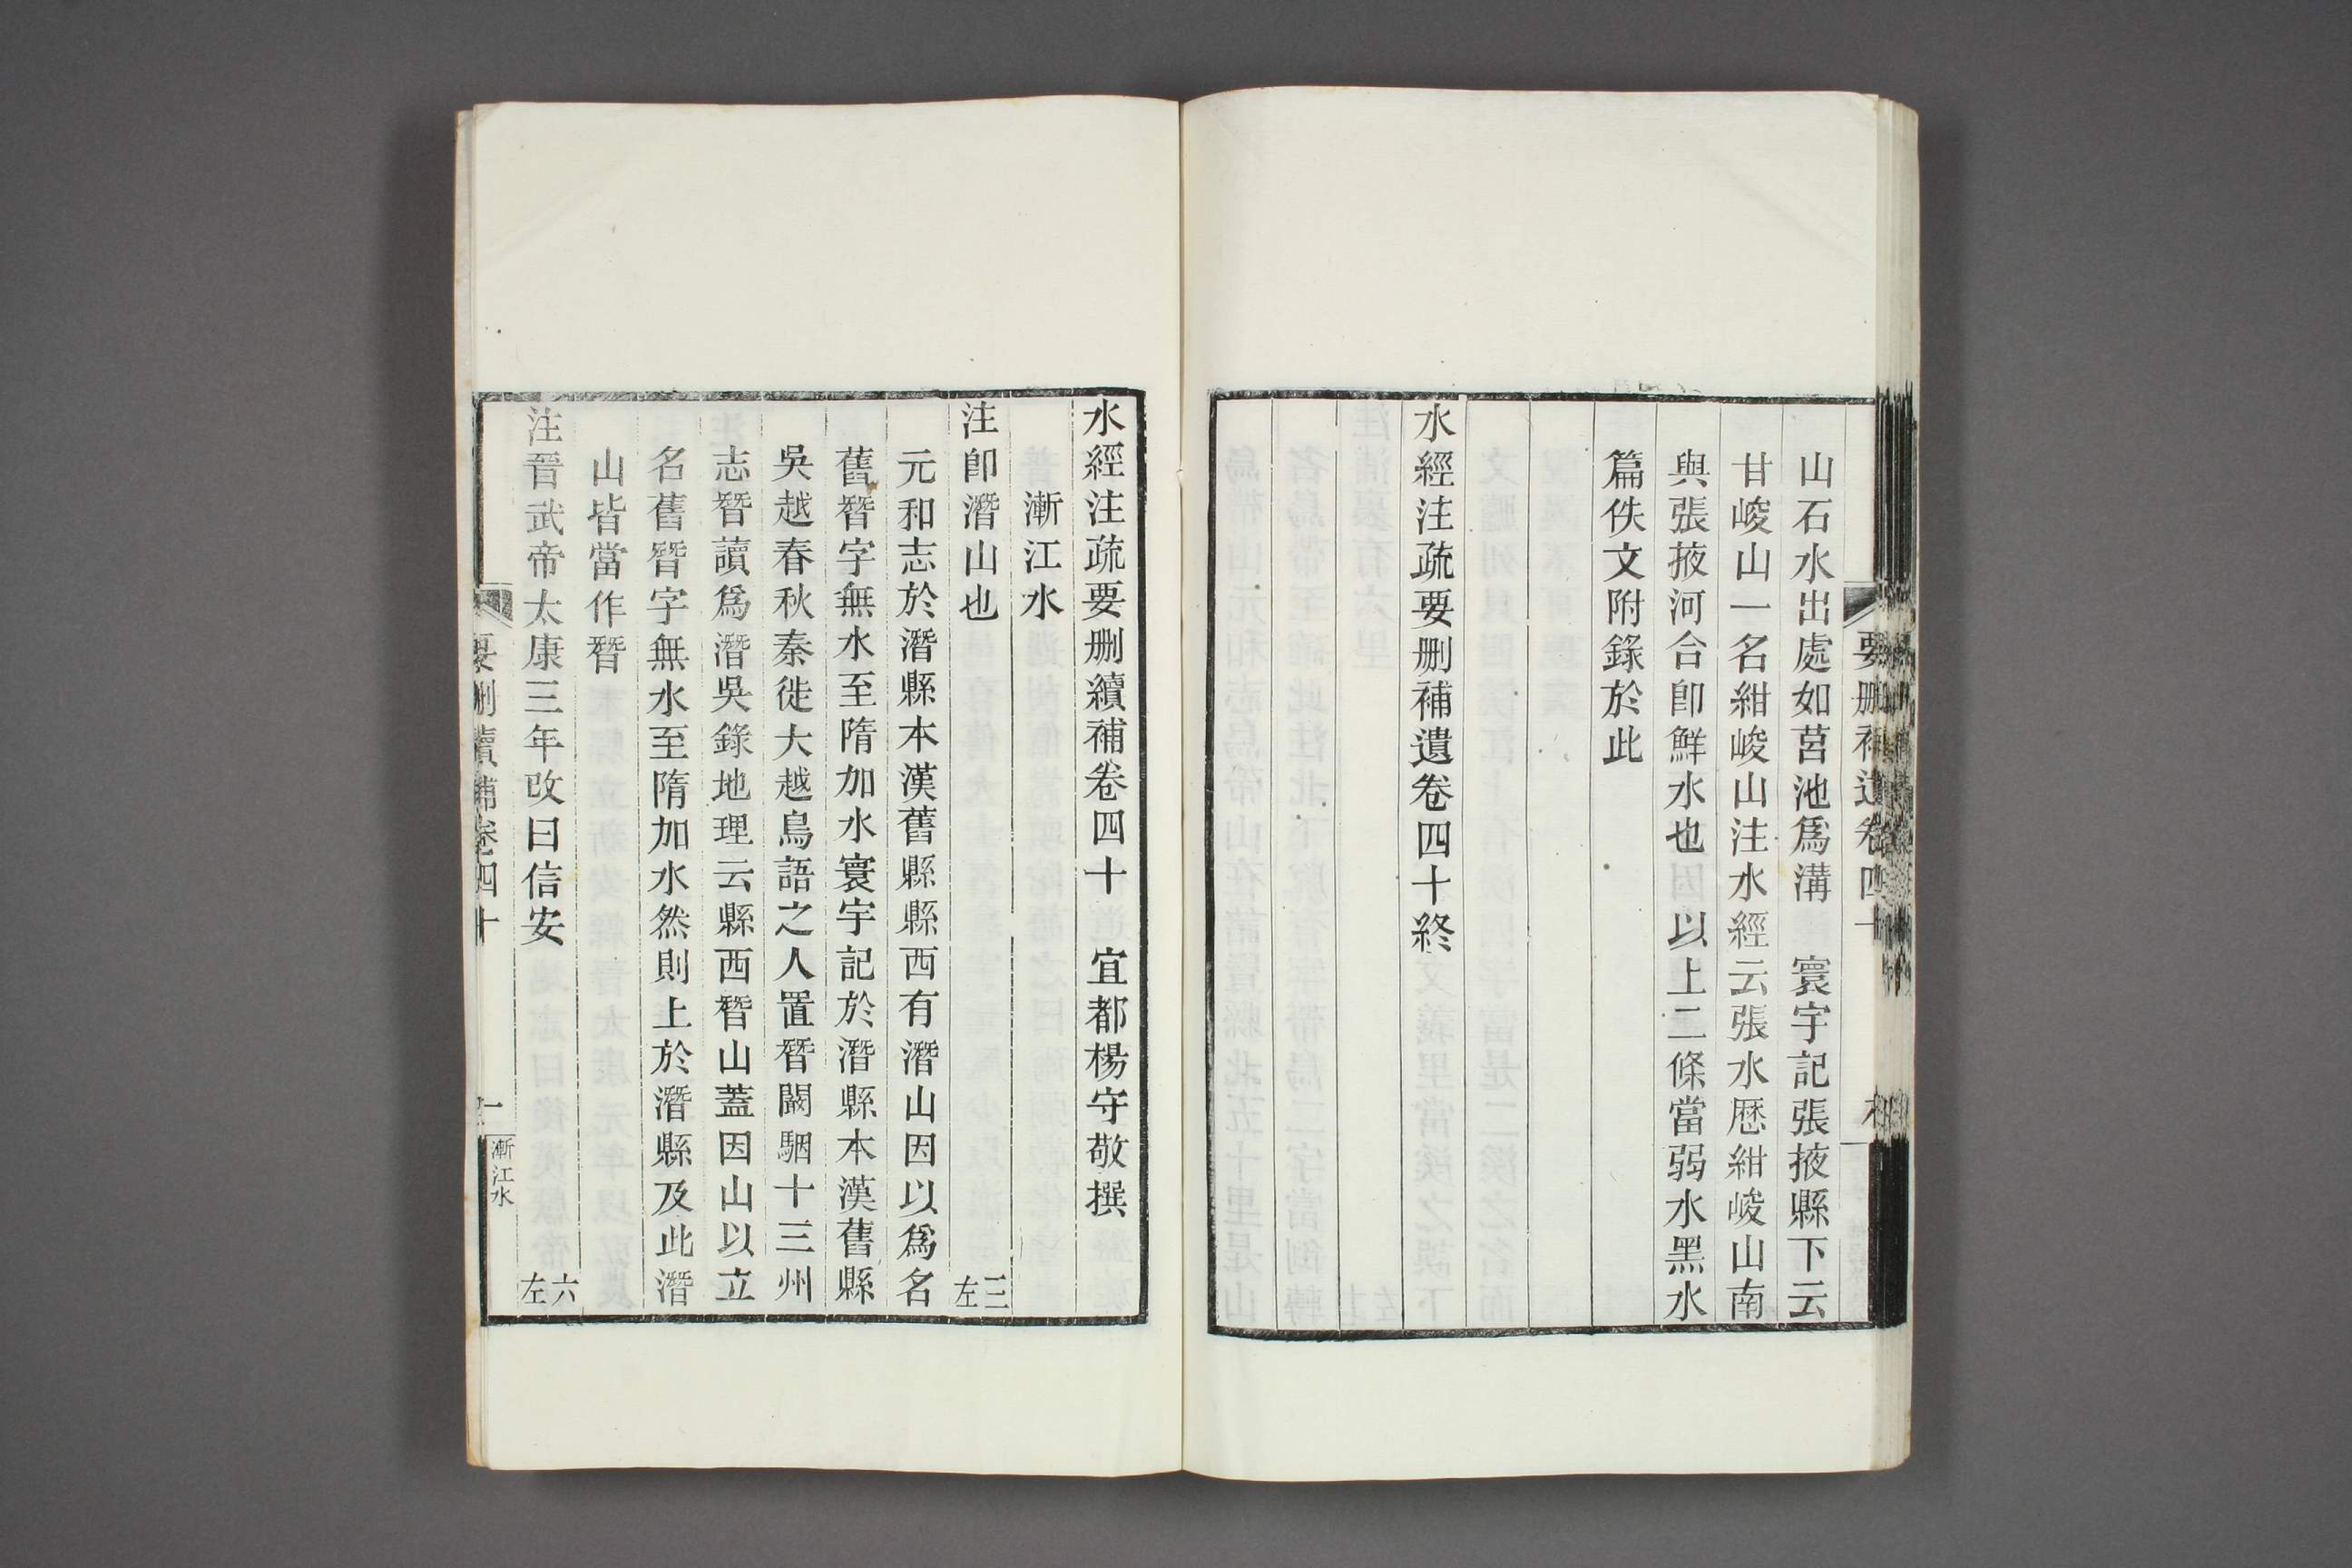 山石水出處如莒池爲溝　寰宇記張掖縣下云
甘峻山一名紺峻山注水經云張水歷紺峻山南
與張掖河合卽鮮水也　以上二條當弱水黑水
篇佚文附錄於此
水經注疏要删補遺卷四十終
水經注疏要删續補卷四十　宜都楊守敬撰
漸江水
注卽潛山也　三左
元和志於潛縣本漢舊縣縣西有潛山因以爲名
舊朁字無水至隋加水寰宇記於潛縣本漢舊縣
吳越春秋秦徙大越鳥語之人置朁闞駰十三州
志朁讀爲潛吳錄地理云縣西朁山蓋因山以立
名舊朁字無水至隋加水然則上於潛縣及此潛
山皆當作朁
注晉武帝太康三年改曰信安　六左
要删續補卷四十
一
漸江水